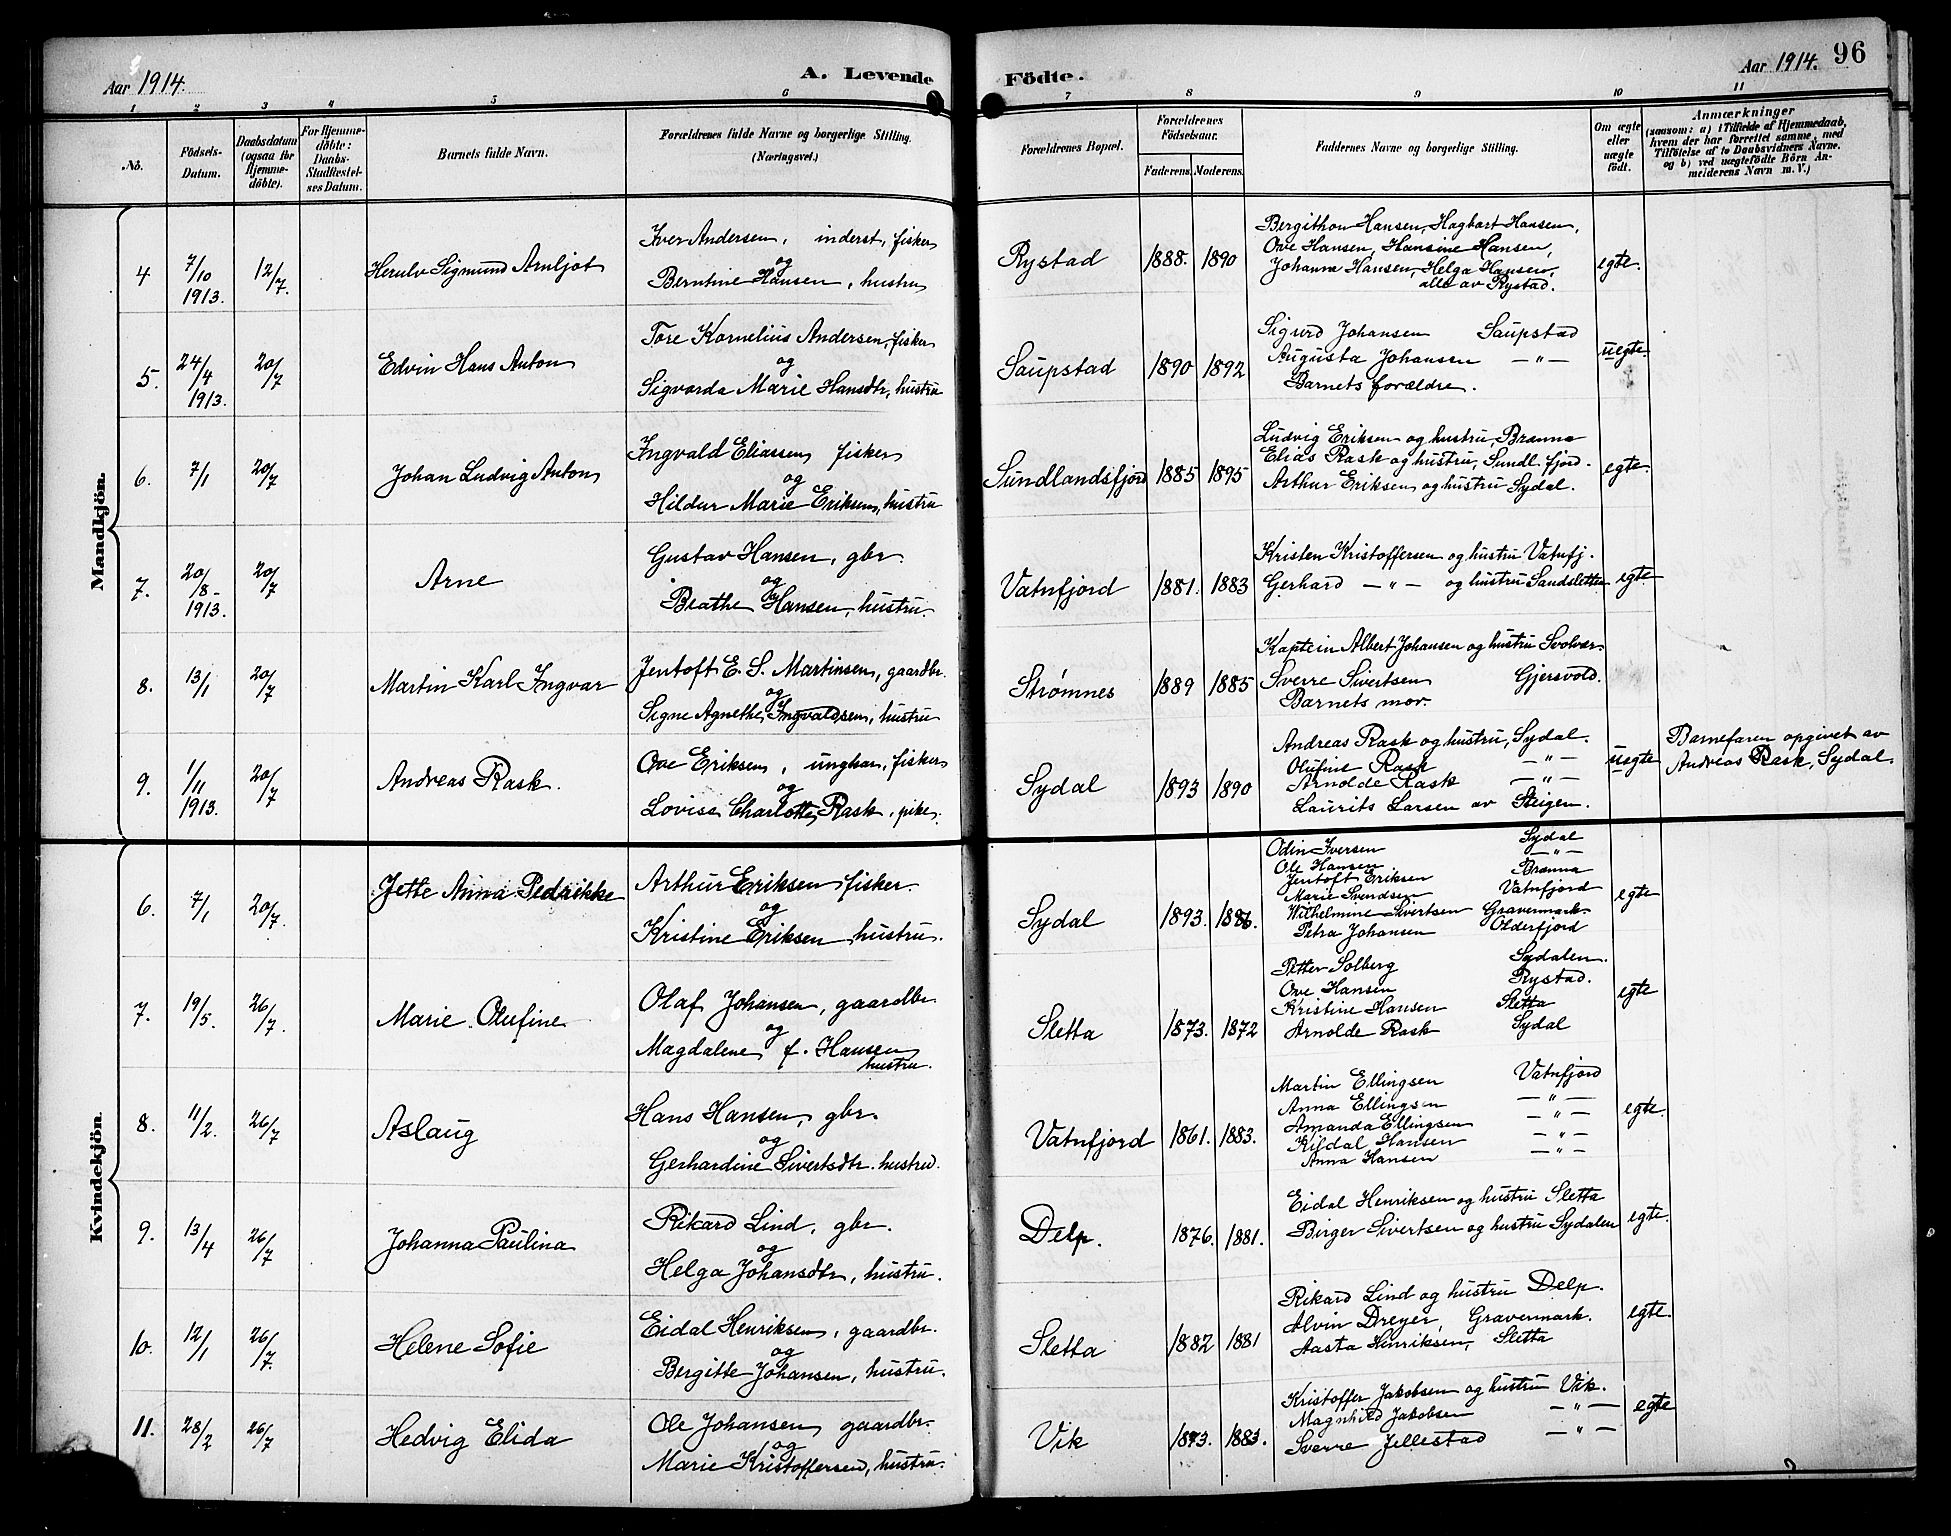 Aar 1914.
A. Levende
Födte.
Aar 1914. 96
1 2 3 4 5 6 7 8 9 10 11
No.
Födsels-Datum.
Daabsdatum (ogsaa for Hjemmedöbte).
For Hjemmedöbte: Daabs-Stadfæstelses Datum.
Barnets fulde Navn.
Forældrenes fulde Navne og borgerlige Stilling.
(Næringsvei.)
Forældrenes Bopæl.
Forældrenes Födselsaar.
Faderens. Moderens.
Faddernes Navne og borgerlige Stilling.
Om ægte eller uægte födt.
Anmærkninger
(saasom: a) i Tilfælde af Hjemmedaab,
hvem der har forrettet samme, med
Tilföielse af to Daabsvidners Navne.
og b) ved uægtefödte Börn An-
melderens Navn m. V.)
Mandkjön.
4 7/10 1913. 12/7. Herulv Sigmund Arnljot
Iver Andersen, inderst, fisker
og
Berntine Hansen, hustru
Rystad 1888. 1890
Bergithon Hansen, Hagbart Hansen,
Ove Hansen, Hansine Hansen,
Johanna Hansen, Helga Hansen,
alle av Rystad.
egte.
5. 24/4 1913. 20/7 Edvin Hans Anton
Tore Kornelius Andersen, fisker
og
Sigvarda Marie Hansdtr, hustru
Saupstad 1890 1892
Sigurd Johansen Saupstad
Augusta Johansen — " —
Barnets forældre.
uegte
6. 7/1 20/7 Johan Ludvig Anton
Ingvald Eliassen fisker
og
Hildur Marie Eriksen, hustru
Sundlandsfjord 1885 1895
Ludvig Eriksen og hustru, Brænna
Elias Rask og hustru, Sundl.fjord.
Arthur Eriksen og hustru Sydal.
egte.
7. 20/8 1913. 20/7 Arne
Gustav Hansen, gbr.
og
Beathe Hansen, hustru.
Vatnfjord 1881. 1883
Kristen Kristoffersen og hustru Vatnfj.
Gerhard — " — og hustru Sandsletten
egte
8. 13/1 20/7 Martin Karl Ingvar
Jentoft E. S. Martinsen, gaardbr.
og
Signe Agnethe Ingvaldsen, hustru
Strømnes 1889 1885
Kaptein Albert Johansen og hustru Svolvær
Sverre Sivertsen Gjersvold.
Barnets mor.
9. 1/11 1913. 20/7 Andreas Rask.
Ove Eriksen, ungkar, fisker
og
Lovise Charlotte Rask, pike.
Sydal 1893 1890
Andreas Rask og hustru, Sydal.
Olufine Rask — " —
Arnolde Rask — " —
Laurits Larsen av Steigen.
uegte
Barnefaren opgivet av
Andreas Rask, Sydal.
Kvindekjön.
6. 7/1 20/7. Jette Anna Pedrikke
Arthur Eriksen fisker.
og
Kristine Eriksen hustru.
Sydal 1893. 1886.
Odin Iversen Sydal
Ole Hansen — " —
Jentoft Eriksen Brænna
Marie Svendsen Vatnfjord
Wilhelmine Sivertsen Gravermark.
Petra Johansen Olderfjord
egte
7. 19/5. 26/7. Marie Olufine
Olaf Johansen, gaardbr.
og
Magdalene f. Hansen
hustru.
Sletta 1873. 1872
Petter Solberg Sydalen.
Ove Hansen Rystad.
Kristine Hansen Sletta
Arnolde Rask Sydal
egte
8. 11/2. 26/7 Aslaug
Hans Hansen, gbr.
og
Gerhardine Sivertsdtr. hustru.
Vatnfjord 1861. 1883.
Martin Ellingsen Vatnfjord
Anna Ellingsen — " —
Amanda Ellingsen — " —
Kildal Hansen — " —
Anna Hansen — " —
egte.
9. 13/4 26/7 Johanna Paulina
Rikard Lind, gbr.
og
Helga Johansdtr, hustru.
Delp. 1876. 1881.
Eidal Henriksen og hustru Sletta
Birger Sivertsen og hustru Sydalen
egte.
10. 12/1 26/7. Helene Sofie
Eidal Henriksen, gaardbr.
og
Bergitte Johansen, hustru.
Sletta 1882 1881
Rikard Lind og hustru Delp.
Alvin Dreyer, Gravermark.
Aasta Henriksen, Sletta
egte.
11. 28/2 26/7 Hedvig Elida
Ole Johansen gaardbr.
og
Marie Kristoffersen, hustru.
Vik 1873. 1883.
Kristoffer Jakobsen og hustru Vik.
Magnhild Jakobsen — " —
Sverre Jellestad — " —
egte